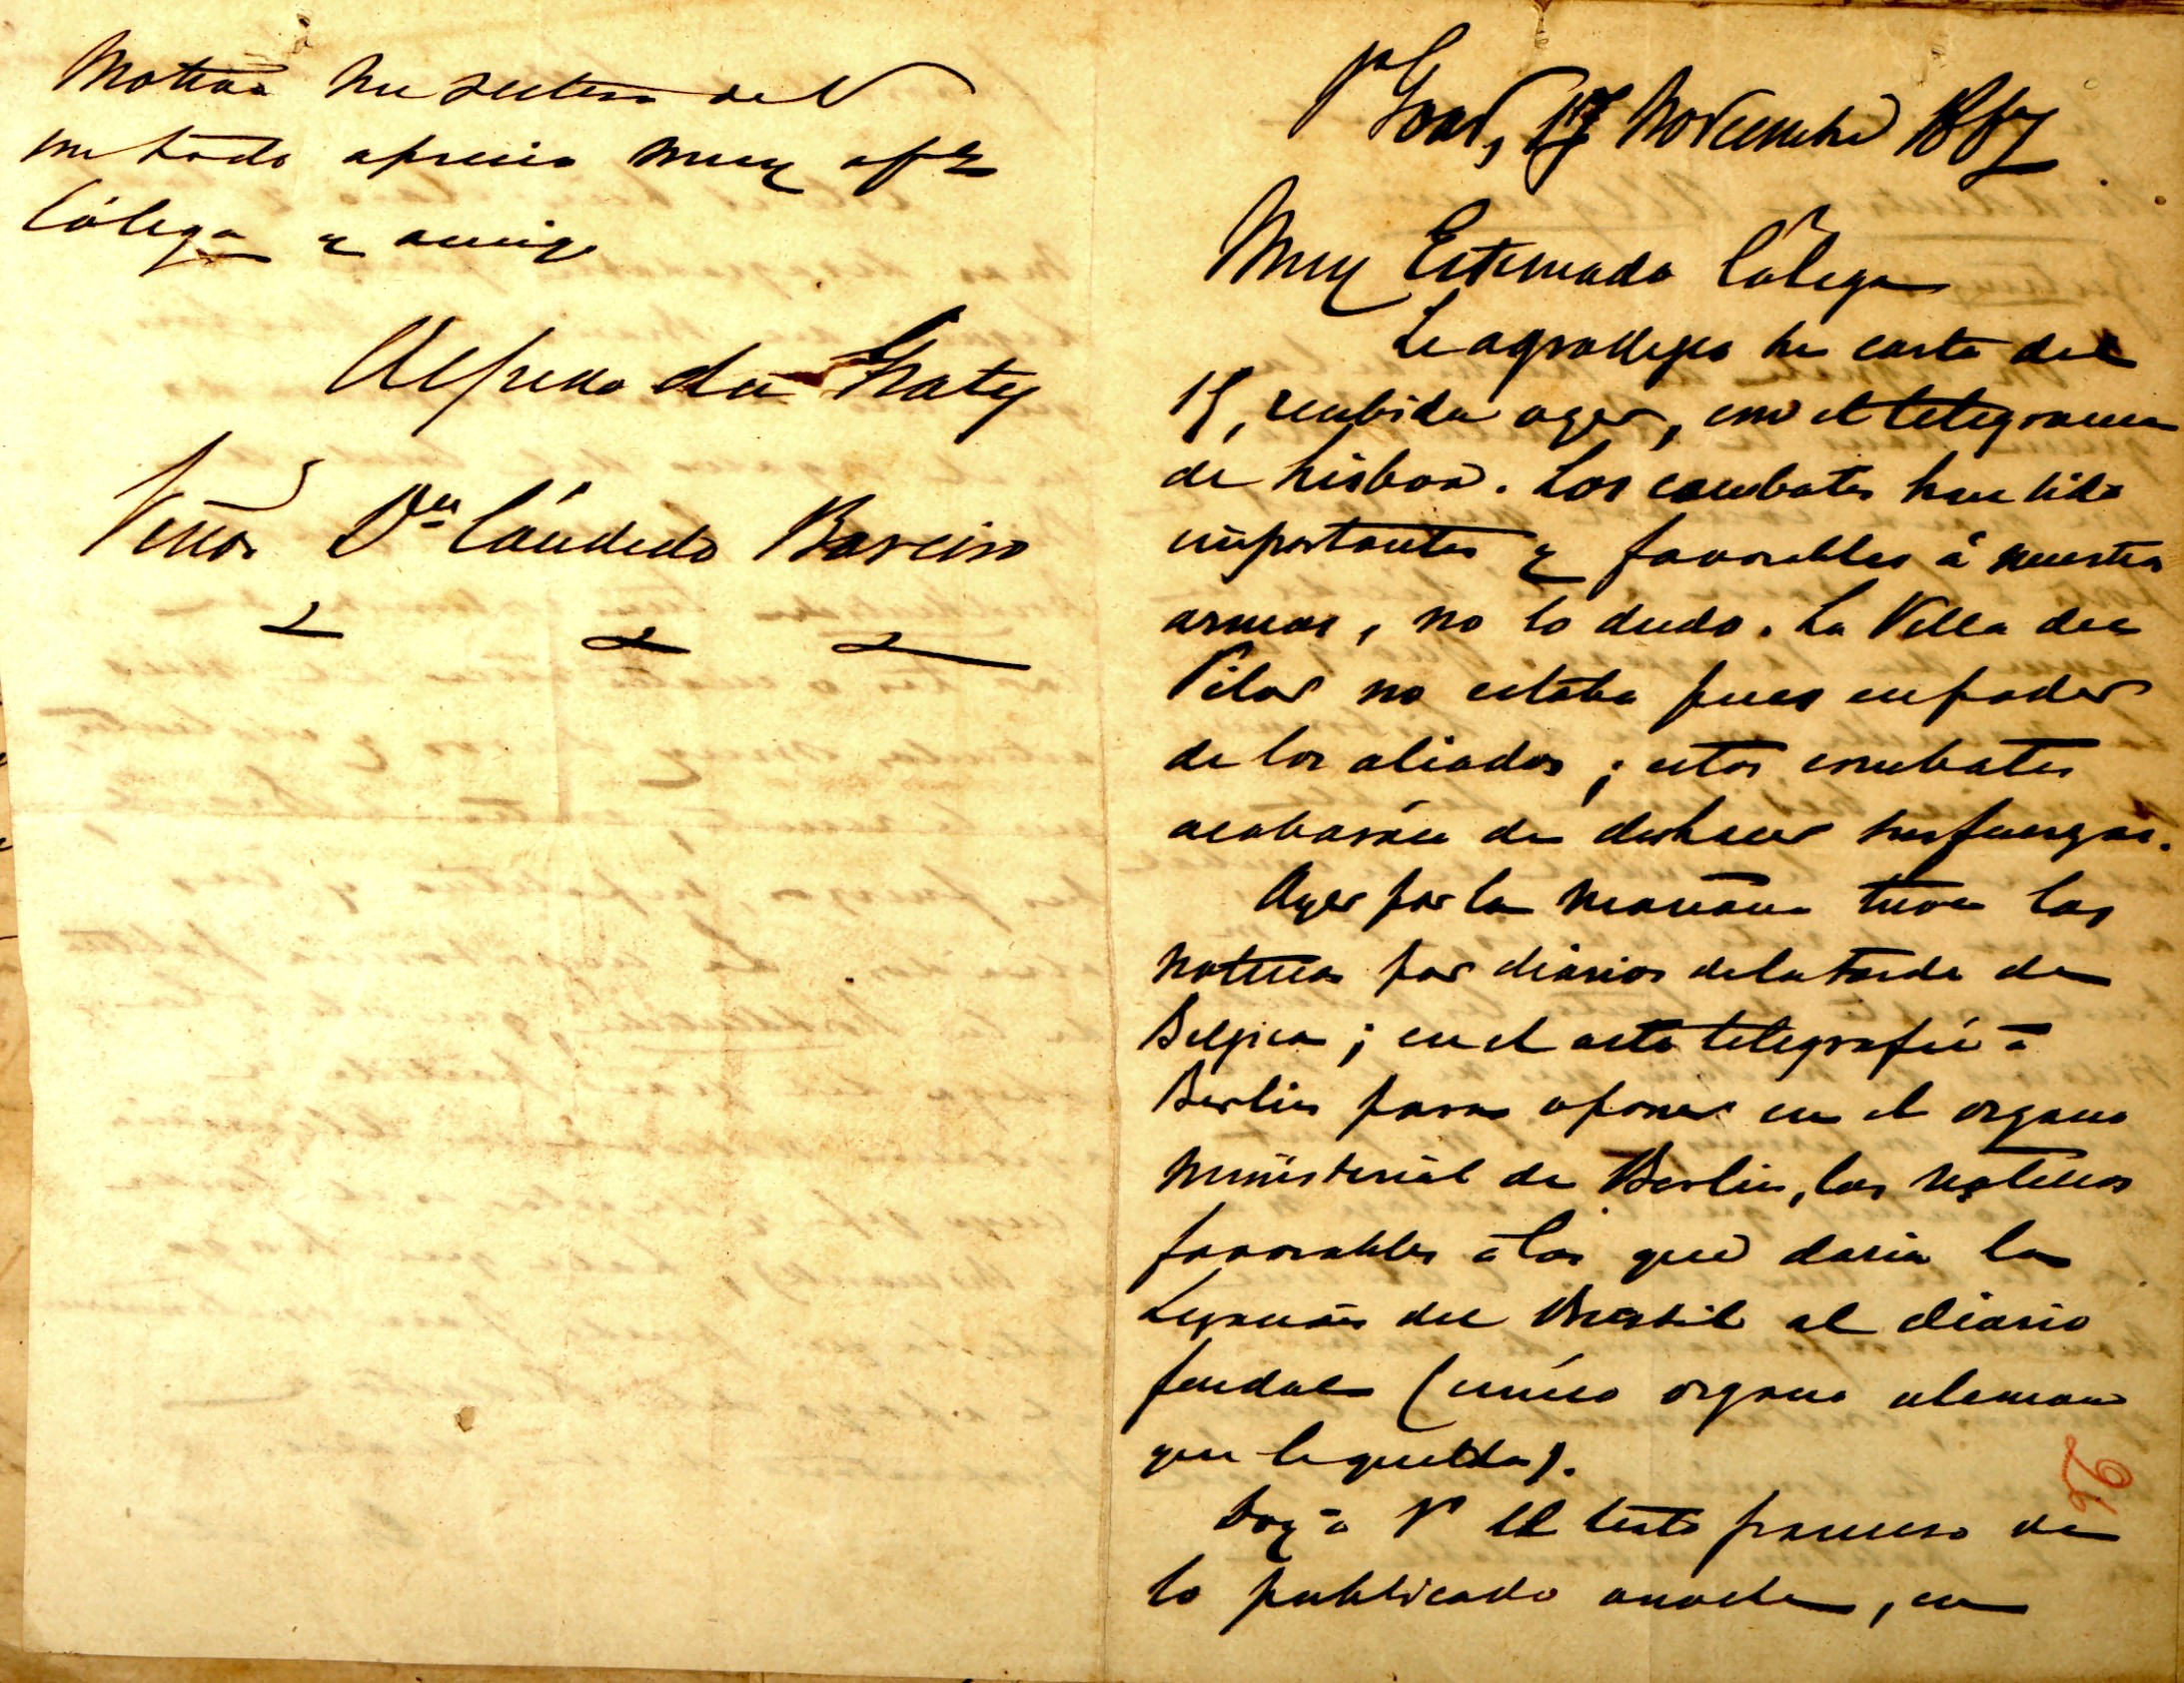 Motivo me reitero de V
con todo aprecio muy af.mo
Cólega y amigo
Alfredo du Graty
Señor Dn Cándido Bareiro
St Goar, 17 Noviembre 1867
Muy Estimado Cólega
Le agradezco su carta del
15, recibida ayer, con el telegrama
de Lisboa. Los combates han sido
importantes y favorables á nuestras
armas, no lo dudo. La Villa del
Pilar no estaba pues en poder
de los aliados; estos combates
acabarán de deshacer sus fuerzas.
Ayer por la mañana tuve las
noticias por diarios de la tarde de
Belgica; en el acto telegrafié á
Berlin para oponer en el organo
ministerial de Berlin, las noticias
favorables á las que daria la
Legacion del Brasil al diario
feudal (unico organo aleman
que le queda).
Doy á V el testo frances de
lo publicado anoche, en
56